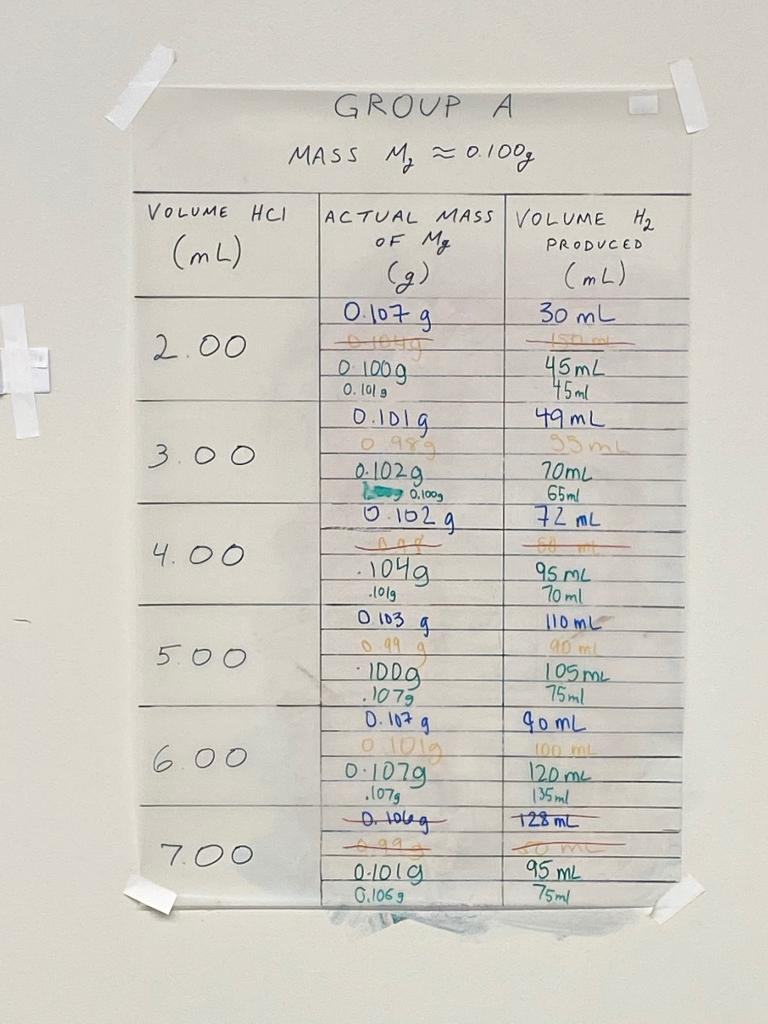 GROUP A
MASS Mg ≈ 0.100g
VOLUME HCl (mL)
ACTUAL MASS OF Mg (g)
VOLUME H2 PRODUCED (mL)
2.00
0.107 g 30 mL
0.104g 150 mL
0.100g 45mL
0.101g 45ml
3.00
0.101g 49mL
0.98g 95mL
0.102g 70mL
0.100g 65ml
4.00
0.102g 72 mL
0.98
.104g 95 mL
.101g 70ml
5.00
0.103 g 110 mL
0.99 g 90 mL
.100g 105mL
.107g 75ml
6.00
0.107 g 90mL
0.101g 100 mL
0.107g 120mL
.107g 135ml
7.00
0.106g 128mL
0.99g mL
0.101g 95 mL
0.106g 75ml